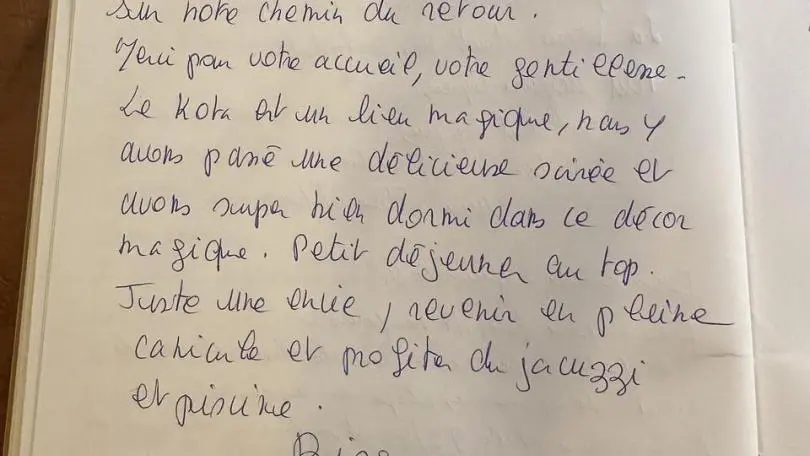 sur notre chemin du retour.
Merci pour votre accueil, votre gentillesse.
Le Kota est un lieu magique, nous y
avons passé une délicieuse soirée et
avons super bien dormi dans ce décor
magique. Petit déjeuner au top.
Juste une envie, revenir en pleine
canicule et profiter du jacuzzi
et piscine.